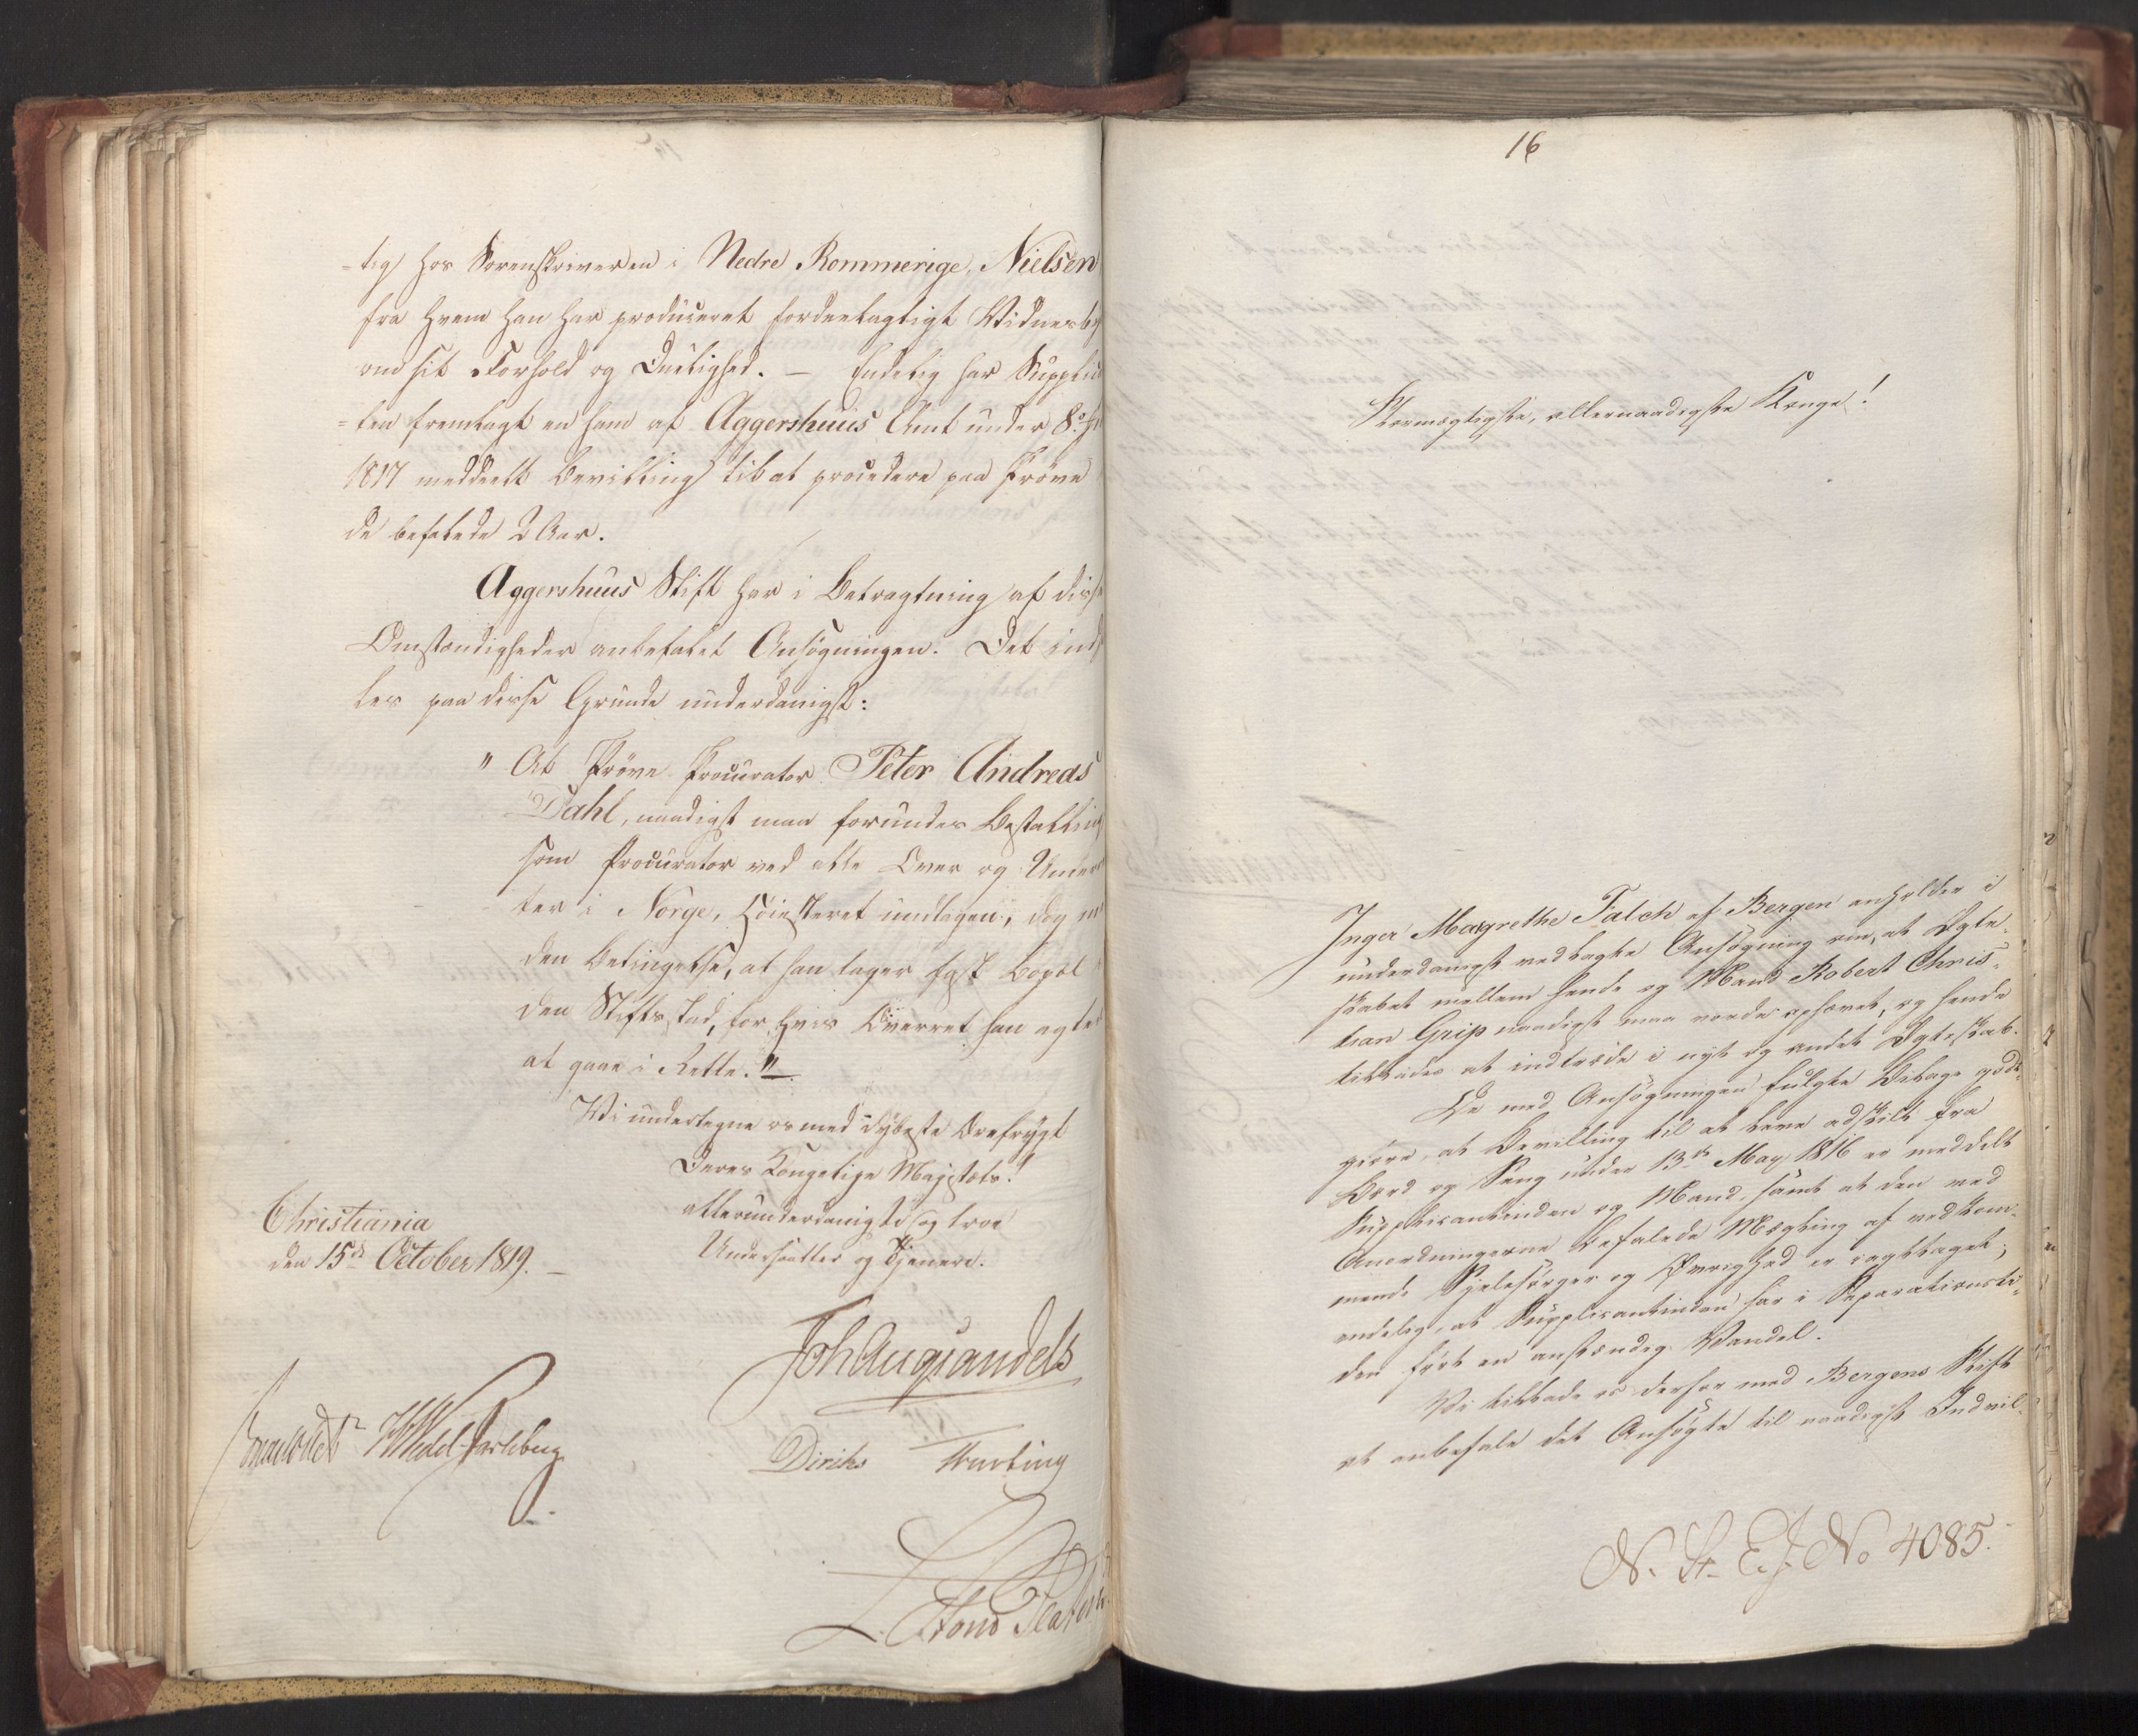 -tig hos Sorenskriveren i Nedre Rommerige, Nielsen
fra hvem han har produceret fordeelagtigt Vidnesby
om sit Forhold og Duelighed. — Endelig har Supplic
=ten fremlagt en ham af Aggershuus Amt under 8de
1817 meddeelt Bevilling til at procedere paa Prøve
de befalede 2 Aar.
Aggershuus Stift har i Betragtning af disse
Omstændigheder anbefalet Ansøgningen. Det ind
les paa disse Grunde underdanigst:
" At Prøve-Procurator Peter Andreas
"Dahl, naadigst maa forundes Bestalling
som Procurator ved alle Over og Under
ter i Norge, Høiesteret undtagen, dog m
den Betingelse, at han tager fast Bopæl
den Stiftsstad, for hvis Overret han agter
at gaae i Rette. "
Vi undertegne os med dybeste Ærefrygt
Deres Kongelige Majestæts!
allerunderdanigste og troe
Undersaatter og Tjenere.
Christiania
den 15de October 1819. —
Joh Aug Sandels
HWedel-Jarlsberg
Diriks Motzfeldt
16
Stormægtigste, allernaadigste Konge!
Inger Magrethe Falch af Bergen anholder i
underdanigst vedlagte Ansøgning om, at Ægte-
skabet mellem hende og Mand Robert Chris-
tian Grip naadigst maa vorde ophævet, og hende
tillades at indtræde i nyt og andet Ægteskab.
De med Ansøgningen fulgte Bilage godt-
giøre, at Bevilling til at leve adskilt fra
Bord og Seng under 13de May 1816 er meddelt
Supplicantinden og Mand, samt at den ved
Anordningerne befalede Mægling af vedkom-
mende Sjelesørger og Øvrighed er iagttaget;
endelig, at Supplicantinden har i Separationsti-
den ført en anstændig Vandel.
Vi tillade os derfor med Bergens Stift
at anbefale det Ansøgte til naadigst Indvil-
N. St. E. J. No 4085.